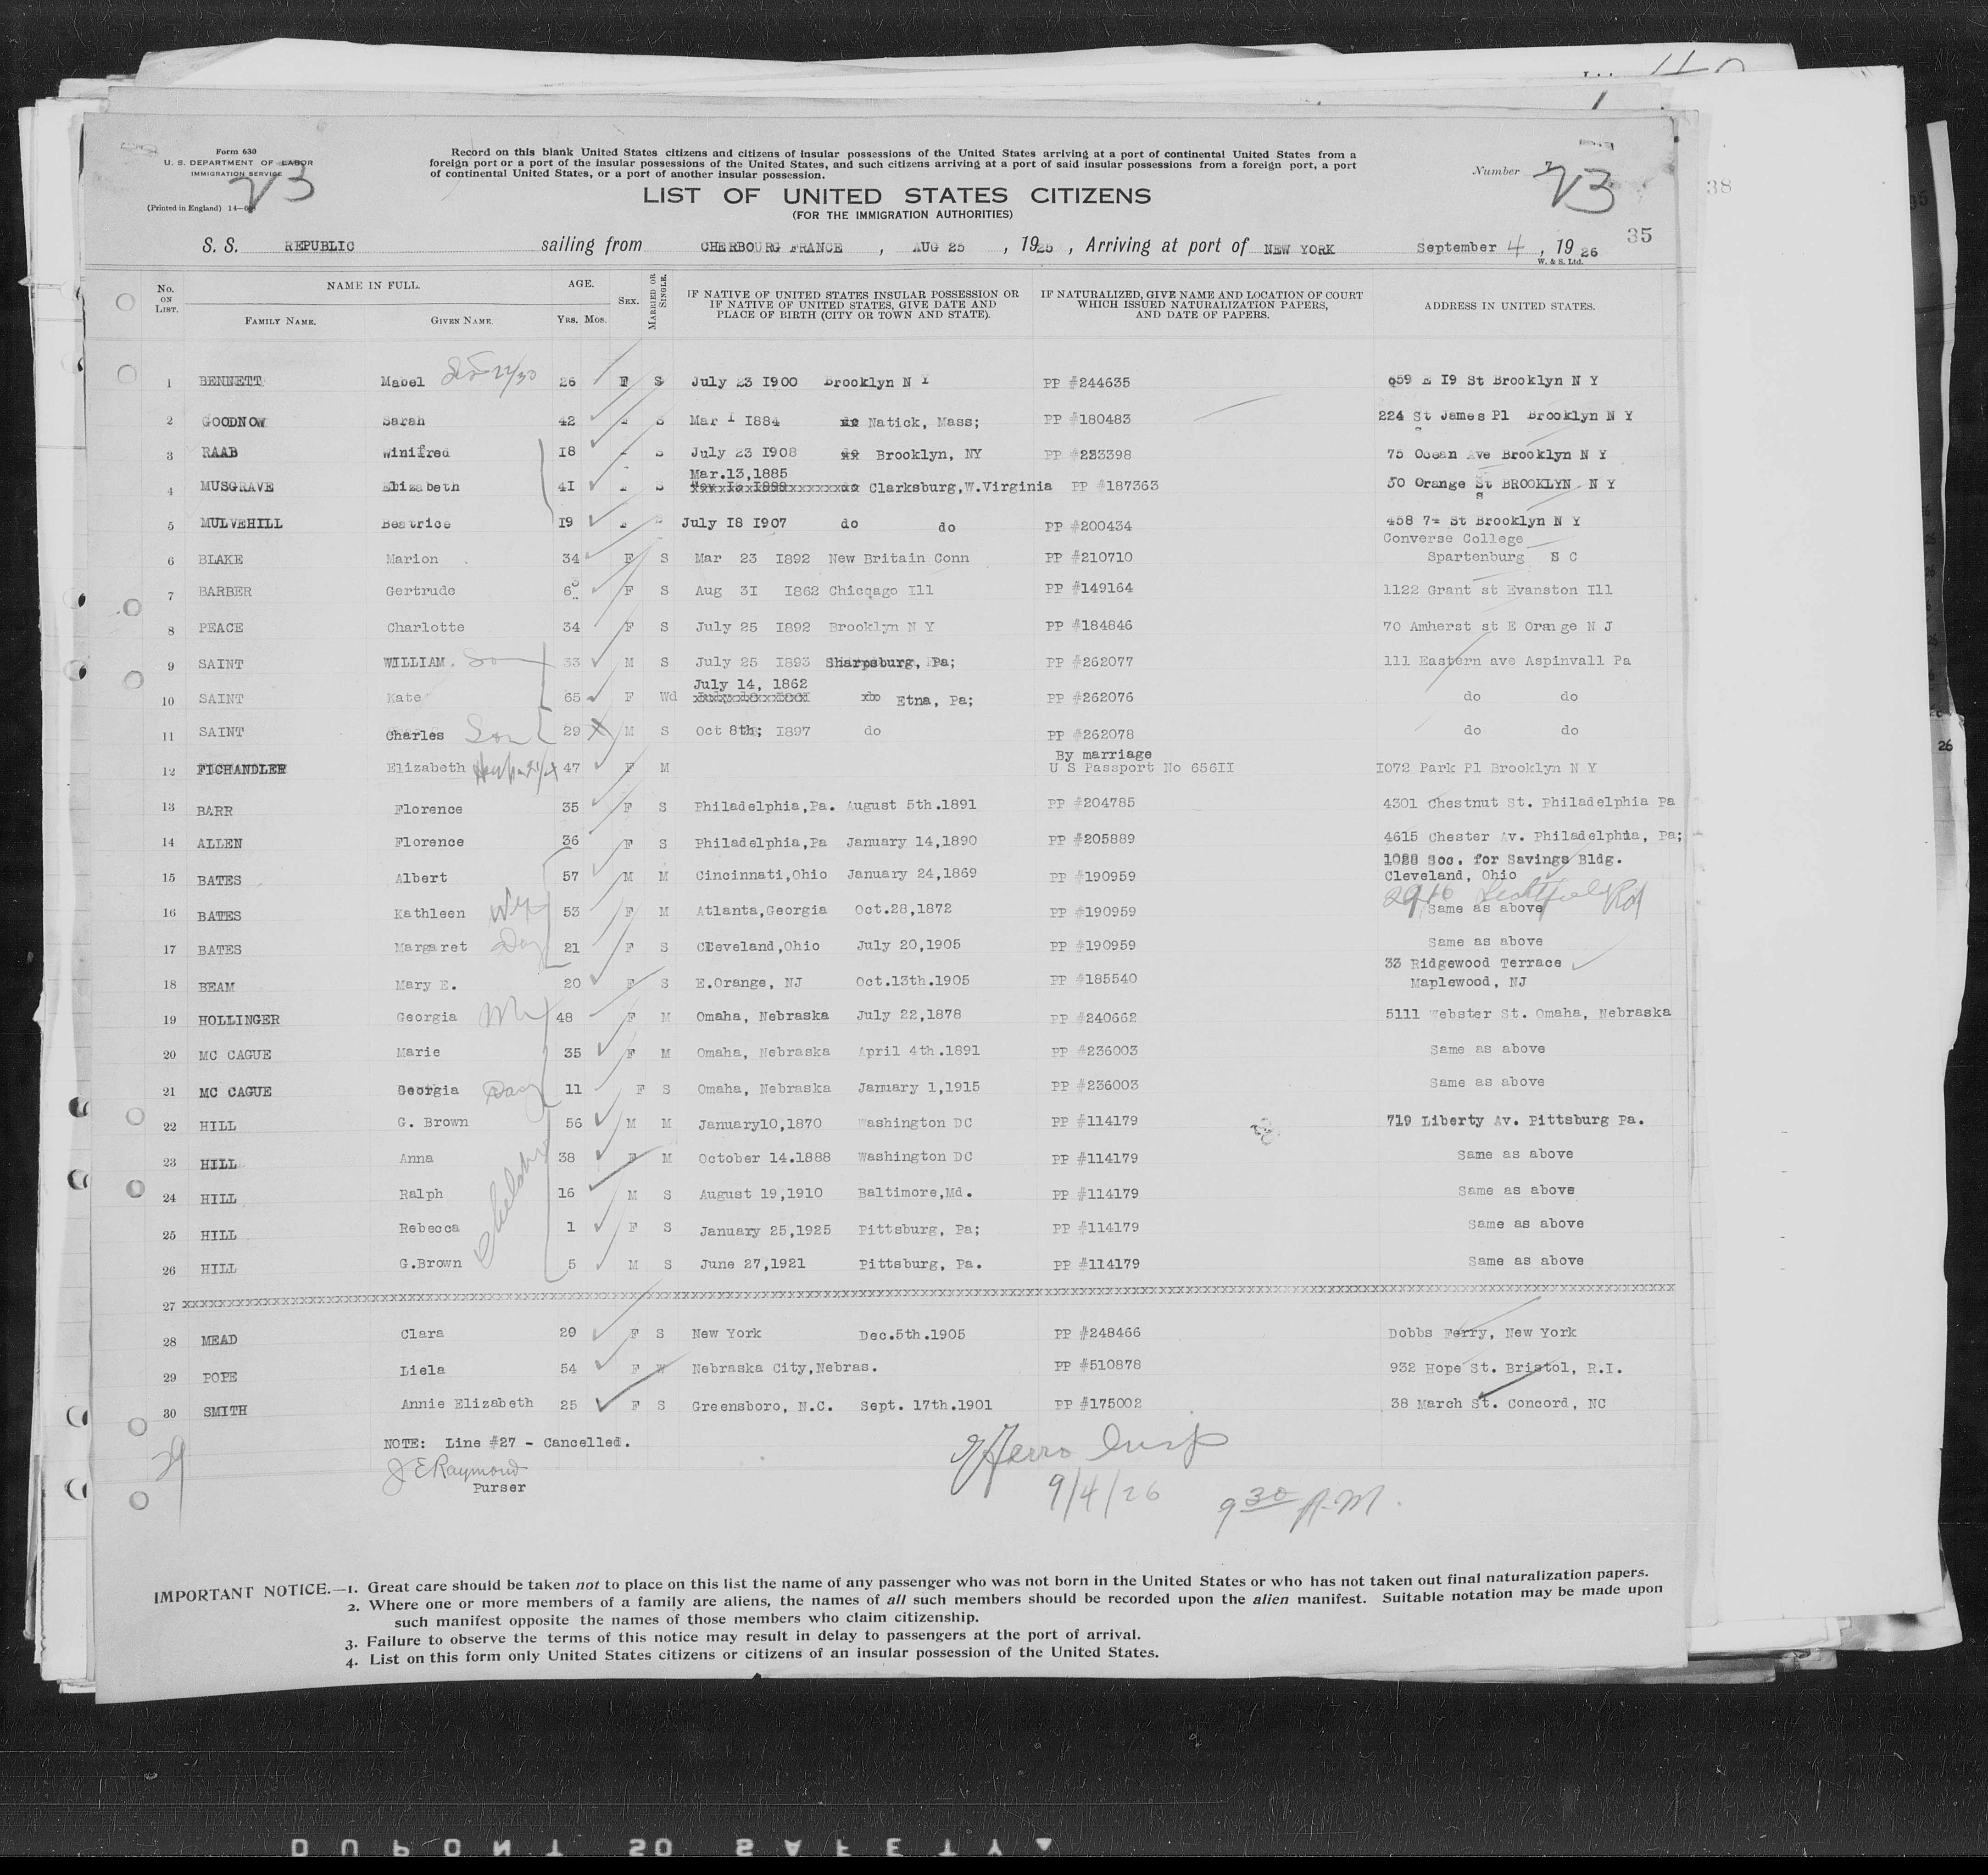 Form 630
U. S. DEPARTMENT OF LABOR
IMMIGRATION SERVICE
(Printed in England) 14—
V3
Record on this blank United States citizens and citizens of insular possessions of the United States arriving at a port of continental United States from a
foreign port or a port of the insular possessions of the United States, and such citizens arriving at a port of said insular possessions from a foreign port, a port
of continental United States, or a port of another insular possession.
Number V3
LIST OF UNITED STATES CITIZENS
(FOR THE IMMIGRATION AUTHORITIES)
35
38
S. S. REPUBLIC sailing from CHERBOURG FRANCE , AUG 25 , 1926 , Arriving at port of NEW YORK September 4 , 19 26
W. & S. Ltd.
No. ON LIST. NAME IN FULL. FAMILY NAME. GIVEN NAME. AGE. Yrs. Mos. SEX. MARRIED OR SINGLE. IF NATIVE OF UNITED STATES INSULAR POSSESSION OR IF NATIVE OF UNITED STATES, GIVE DATE AND PLACE OF BIRTH (CITY OR TOWN AND STATE). IF NATURALIZED, GIVE NAME AND LOCATION OF COURT WHICH ISSUED NATURALIZATION PAPERS, AND DATE OF PAPERS. ADDRESS IN UNITED STATES.
1 BENNETT Mabel 26 F S July 23 I900 Brooklyn N Y PP #244635 659 E I9 St Brooklyn N Y
2 GOODNOW Sarah 42 S Mar I I884 do Natick, Mass; PP #180483 224 St James Pl Brooklyn N Y
3 RAAB Winifred I8 S July 23 I908 do Brooklyn, NY PP #223398 75 Ocean Ave Brooklyn N Y
Mar.13,1885
4 MUSGRAVE Elizabeth 4I S do Clarksburg,W.Virginia PP #187363 50 Orange St BROOKLYN N Y
5 MULVEHILL Beatrice I9 S July I8 I907 do do PP #200434 458 7 St Brooklyn N Y
Converse College
6 BLAKE Marion 34 F S Mar 23 I892 New Britain Conn PP #210710 Spartenburg S C
7 BARBER Gertrude 63 F S Aug 3I I862 Chicqago Ill PP #149164 1122 Grant st Evanston Ill
8 PEACE Charlotte 34 F S July 25 I892 Brooklyn N Y PP #184846 70 Amherst st E Orange N J
9 SAINT WILLIAM. Son 33 M S July 25 I893 Sharpsburg, Pa; PP #262077 111 Eastern ave Aspinvall Pa
July 14, 1862
10 SAINT Kate 65 F Wd Etna, Pa; PP #262076 do do
11 SAINT Charles Son 29 M S Oct 8th; I897 do PP #262078 do do
By marriage
12 FICHANDLER Elizabeth 47 F M U S Passport No 656II I072 Park Pl Brooklyn N Y
13 BARR Florence 35 F S Philadelphia,Pa. August 5th.1891 PP #204785 4301 Chestnut St. Philadelphia Pa
14 ALLEN Florence 36 F S Philadelphia,Pa January 14,1890 PP #205889 4615 Chester Av. Philadelphia, Pa;
1028 Soc. for Savings Bldg.
15 BATES Albert 57 M M Cincinnati,Ohio January 24,1869 PP #190959 Cleveland, Ohio
16 BATES Kathleen Wife 53 F M Atlanta,Georgia Oct.28,1872 PP #190959 Same as above
17 BATES Margaret Dau 21 F S Cleveland,Ohio July 20,1905 PP #190959 Same as above
33 Ridgewood Terrace
18 BEAM Mary E. 20 F S E.Orange, NJ Oct.13th.1905 PP #185540 Maplewood, NJ
19 HOLLINGER Georgia 48 F M Omaha, Nebraska July 22,1878 PP #240662 5111 Webster St. Omaha, Nebraska
20 MC CAGUE Marie 35 F M Omaha, Nebraska April 4th.1891 PP #236003 Same as above
21 MC CAGUE Georgia Dau 11 F S Omaha, Nebraska January 1,1915 PP #236003 Same as above
22 HILL G. Brown 56 M M January10,1870 Washington DC PP #114179 719 Liberty Av. Pittsburg Pa.
23 HILL Anna 38 F M October 14.1888 Washington DC PP #114179 Same as above
24 HILL Ralph 16 M S August 19,1910 Baltimore,Md. PP #114179 Same as above
children
25 HILL Rebecca 1 F S January 25,1925 Pittsburg, Pa; PP #114179 Same as above
26 HILL G.Brown 5 M S June 27,1921 Pittsburg, Pa. PP #114179 Same as above
27
28 MEAD Clara 29 F S New York Dec.5th.1905 PP #248466 Dobbs Ferry, New York
29 POPE Liela 54 F W Nebraska City,Nebras. PP #510878 932 Hope St. Bristol, R.I.
30 SMITH Annie Elizabeth 25 F S Greensboro, N.C. Sept. 17th.1901 PP #175002 38 March St. Concord, NC
29
NOTE: Line #27 - Cancelled.
J E Raymond
Purser
Insp
9/4/26 9 30 A.M.
IMPORTANT NOTICE.—1. Great care should be taken not to place on this list the name of any passenger who was not born in the United States or who has not taken out final naturalization papers.
2. Where one or more members of a family are aliens, the names of all such members should be recorded upon the alien manifest. Suitable notation may be made upon
such manifest opposite the names of those members who claim citizenship.
3. Failure to observe the terms of this notice may result in delay to passengers at the port of arrival.
4. List on this form only United States citizens or citizens of an insular possession of the United States.
DUPONT SAFETY